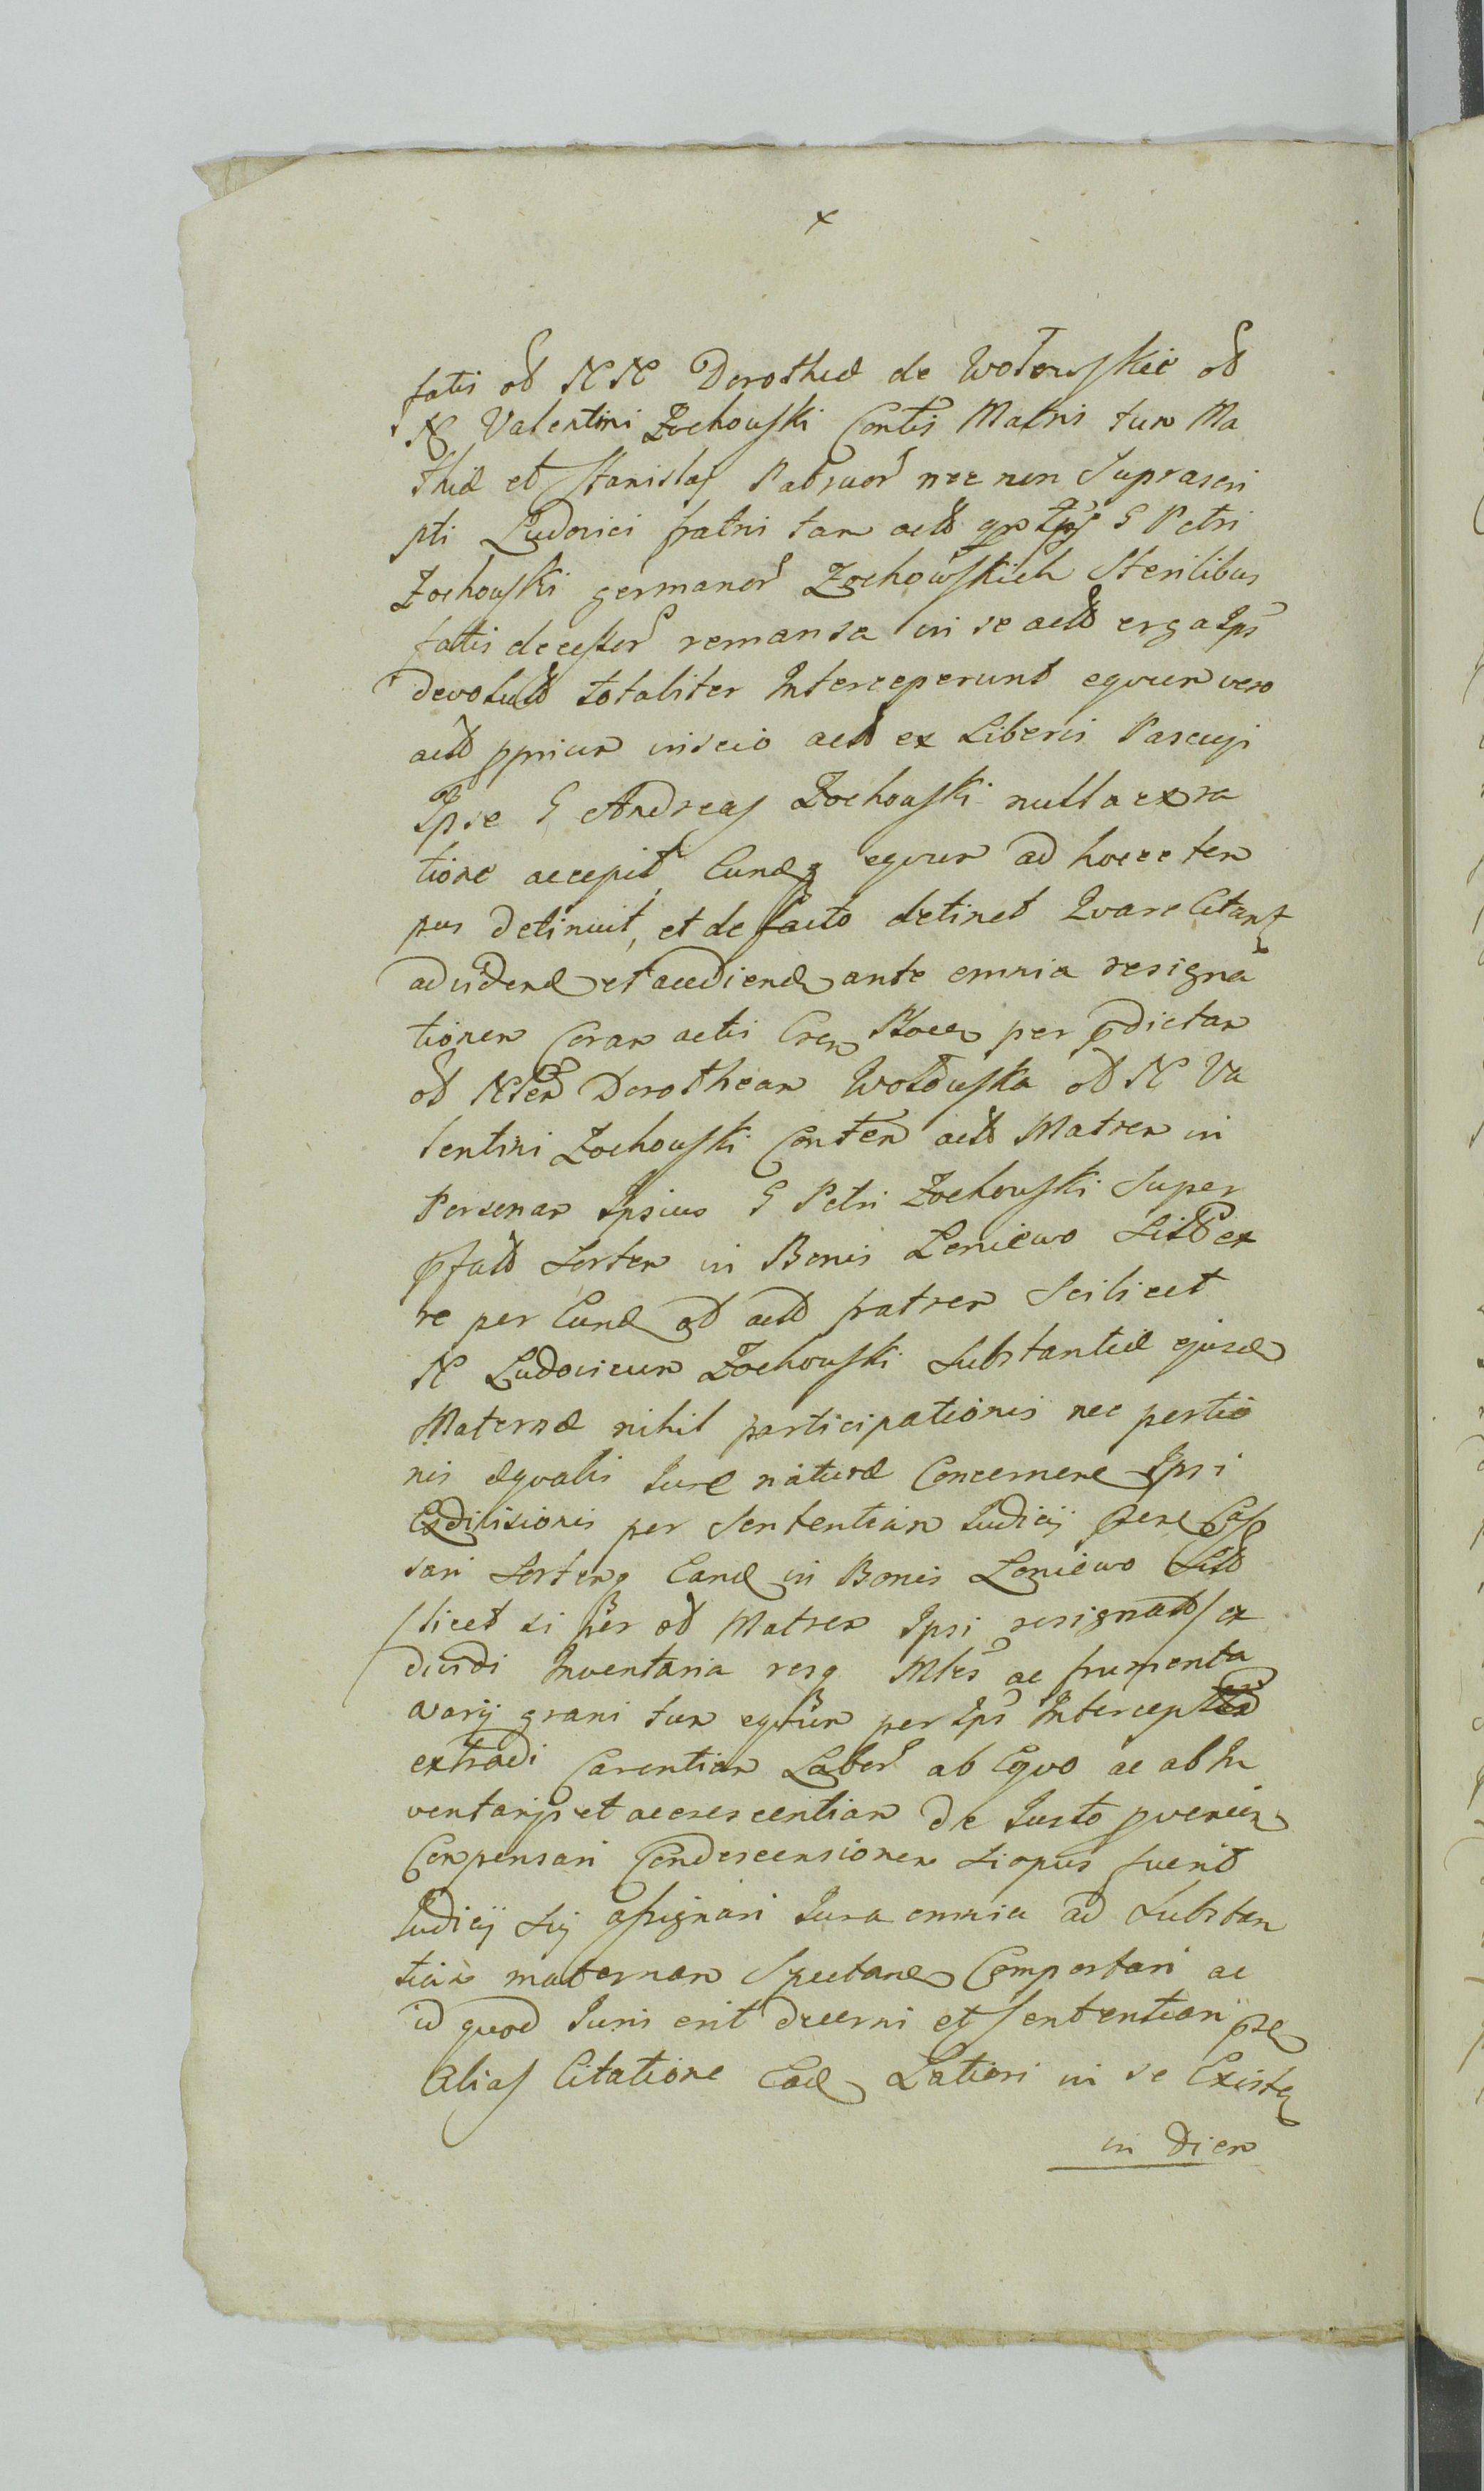 x
fatis od NN Dorotheæ de Wołowskie od
N Valentini Zochowski Contis Matris tum Ma
thiæ et Stanislaj Patruor nec non Suprascri
pti Ludovici fratris tam actd G Petri
Zochowski germanor Zochowskich Sterilibus
fatis decessor remansa in se actd erga Ips
devolutd totaliter Interceperunt equum vero
actd pprium inscio actd ex Liberis Pascujs
Ipse G Andreas Zochowski nulla ex ra
tione accepit, Eundq equum ad hocce tem
pus detinuit, et de facto detinet Quare Citant
ad vidend et audiend ante omnia resigna
tionem Coram actis per pdictam
od Dorotheam Wołowska od N Va
lentini Zochowski Contem actd Matrem in
Personam Ipsius G Petri Zochowski Super
pfatd Sortem in Bonis Leniewo Sitd ex
re per Eund od actd fratrem Scilicet
N Ludovicum Zochowski Substantiæ ejusd
Maternæ nihil participationis nec portio
nis æqvalis Jure naturæ Concernere Ipsi
Exdivisionis per Sententiam Judicij
sari Sortemq Eand in Bonis Leniewo Sitd
/licet si per od Matrem Ipsi resignatd/ ex
dividi Inventaria resq Mles ac frumenta
varij grani tum equum per Ips Intercept
extradi Carentiam Labor ab Equo ac ab In
ventarijs et accrescentiam de Justo
Compensari Condescensionem si opus fuerit
Judicij Sui assignari Jura omnia ad Substan
tiam maternam Spectand Comportari ac
id quod Juris erit decerni et Sententiari
Alias Citatione Ead Latiori in se Existen
in Diem